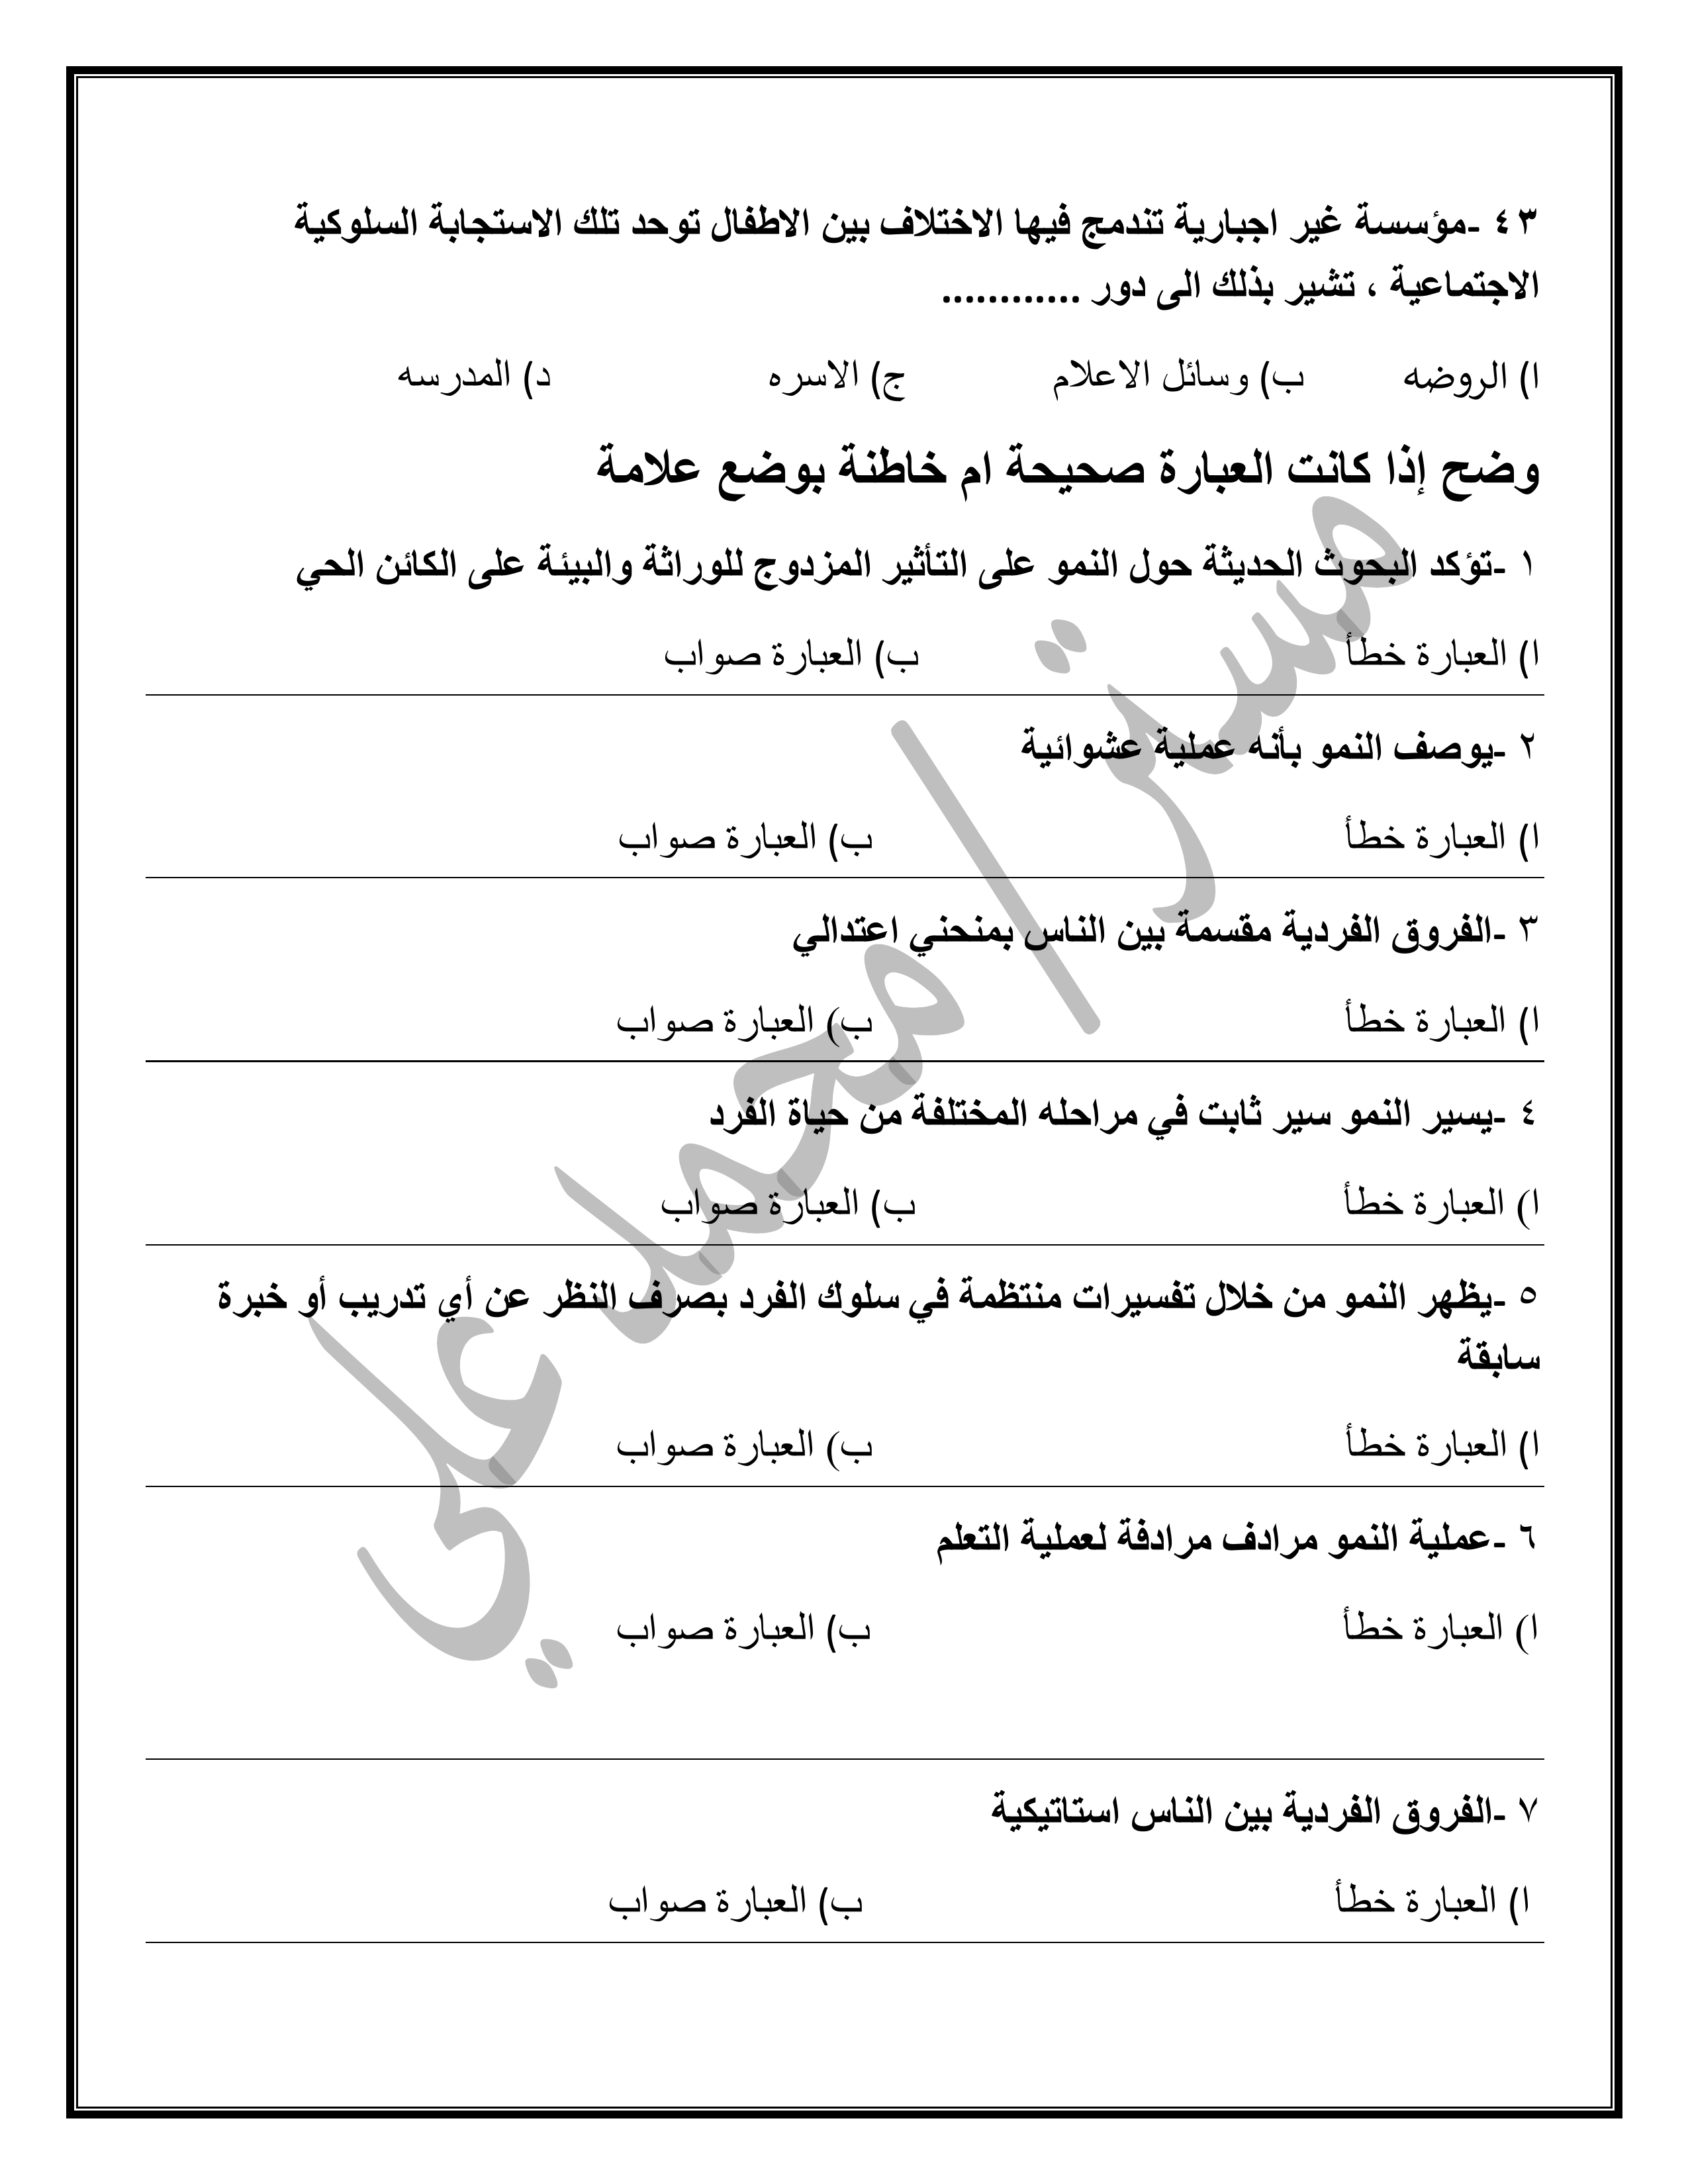 ٤٣ -مؤسسة غير اجبارية تندمج فيها الاختلاف بين الاطفال توحد تلك الاستجابة السلوكية
الاجتماعية ، تشير بذلك الى دور ............
ا) الروضه ب) وسائل الاعلام ج) الاسره د) المدرسه
وضح إذا كانت العبارة صحيحة ام خاطنة بوضع علامة
١ -تؤكد البحوث الحديثة حول النمو على التأثير المزدوج للوراثة والبيئة على الكائن الحي
ا) العبارة خطأ ب) العبارة صواب
٢ -يوصف النمو بأنه عملية عشوائية
ا) العبارة خطأ ب) العبارة صواب
٣ -الفروق الفردية مقسمة بين الناس بمنحني اعتدالي
ا) العبارة خطأ ب) العبارة صواب
٤ -يسير النمو سير ثابت في مراحله المختلفة من حياة الفرد
ا) العبارة خطأ ب) العبارة صواب
٥ -يظهر النمو من خلال تفسيرات منتظمة في سلوك الفرد بصرف النظر عن أي تدريب أو خبرة
سابقة
ا) العبارة خطأ ب) العبارة صواب
٦ -عملية النمو مرادف مرادفة لعملية التعلم
ا) العبارة خطأ ب) العبارة صواب
٧ -الفروق الفردية بين الناس استاتيكية
ا) العبارة خطأ ب) العبارة صواب
مستر/محمد علي